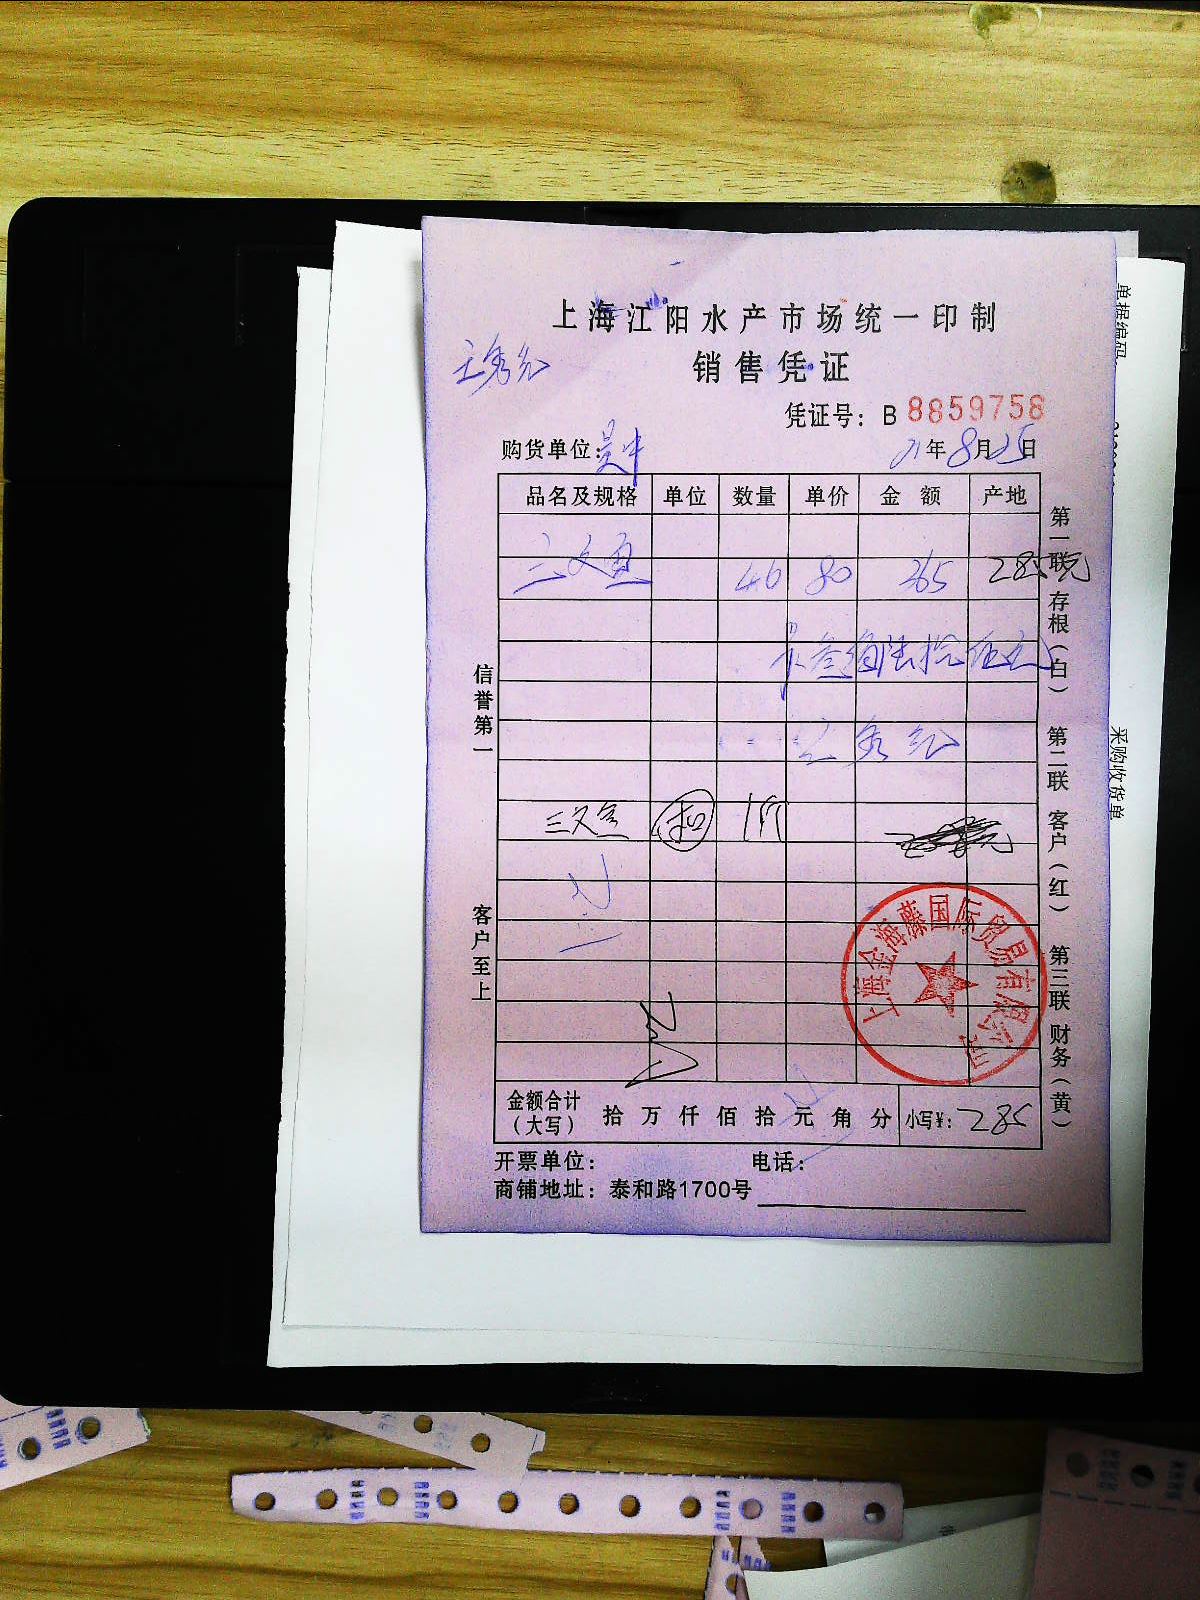 上海江阳水产市场统一印制
销售凭证
凭证号：B 8859758
购货单位：
21年8月25日
品名及规格 单位 数量 单价 金额 产地
三文鱼 46 80 365 285元
三文鱼
信誉第一
客户至上
第一联 存根（白） 第二联 客户（红） 第三联 财务（黄）
上海金海藤国际贸易有限公司
金额合计（大写） 拾万仟佰拾元角分 小写¥：285
开票单位： 电话：
商铺地址：泰和路1700号
单据编码
采购收货单